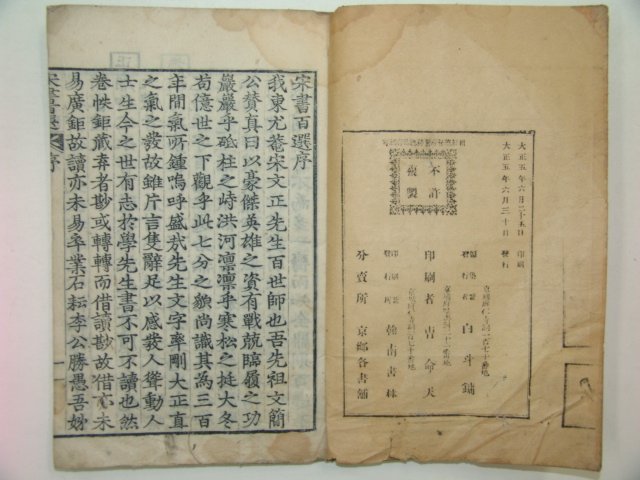 宋書百選序
我東尤菴宋文正先生百世師也吾先祖文簡
公賛真曰以豪傑英雄之資有戰兢臨履之功
巖巖乎砥柱之峙洪河凛凛乎寒松之挺大冬
苟億世之下觀乎此七分之貌尚識其爲三百
年間氣所鍾嗚呼盛哉先生文字率剛大正直
之氣之發故雖片言隻辭足以感發人聳動人
士生今之世有志於學先生書不可不讀也然
卷帙鉅藏弆者尠或轉轉而借讀尠故借亦未
易廣鉅故讀亦未易卒業石耘李公勝愚吾姊
大正五年六月二十五日 印刷
大正五年六月三十日 發行
不許
複製
編集兼
發行者 白斗鏞
印刷者 吉命天
印刷兼
發行所 翰南書林
分賣所 京鄕各書舖